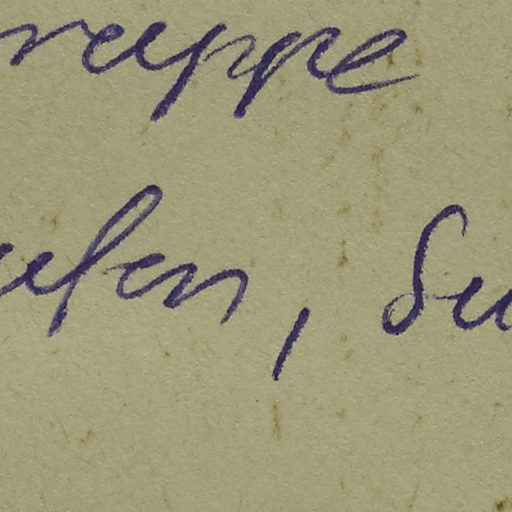 ruppe
ufen, Su